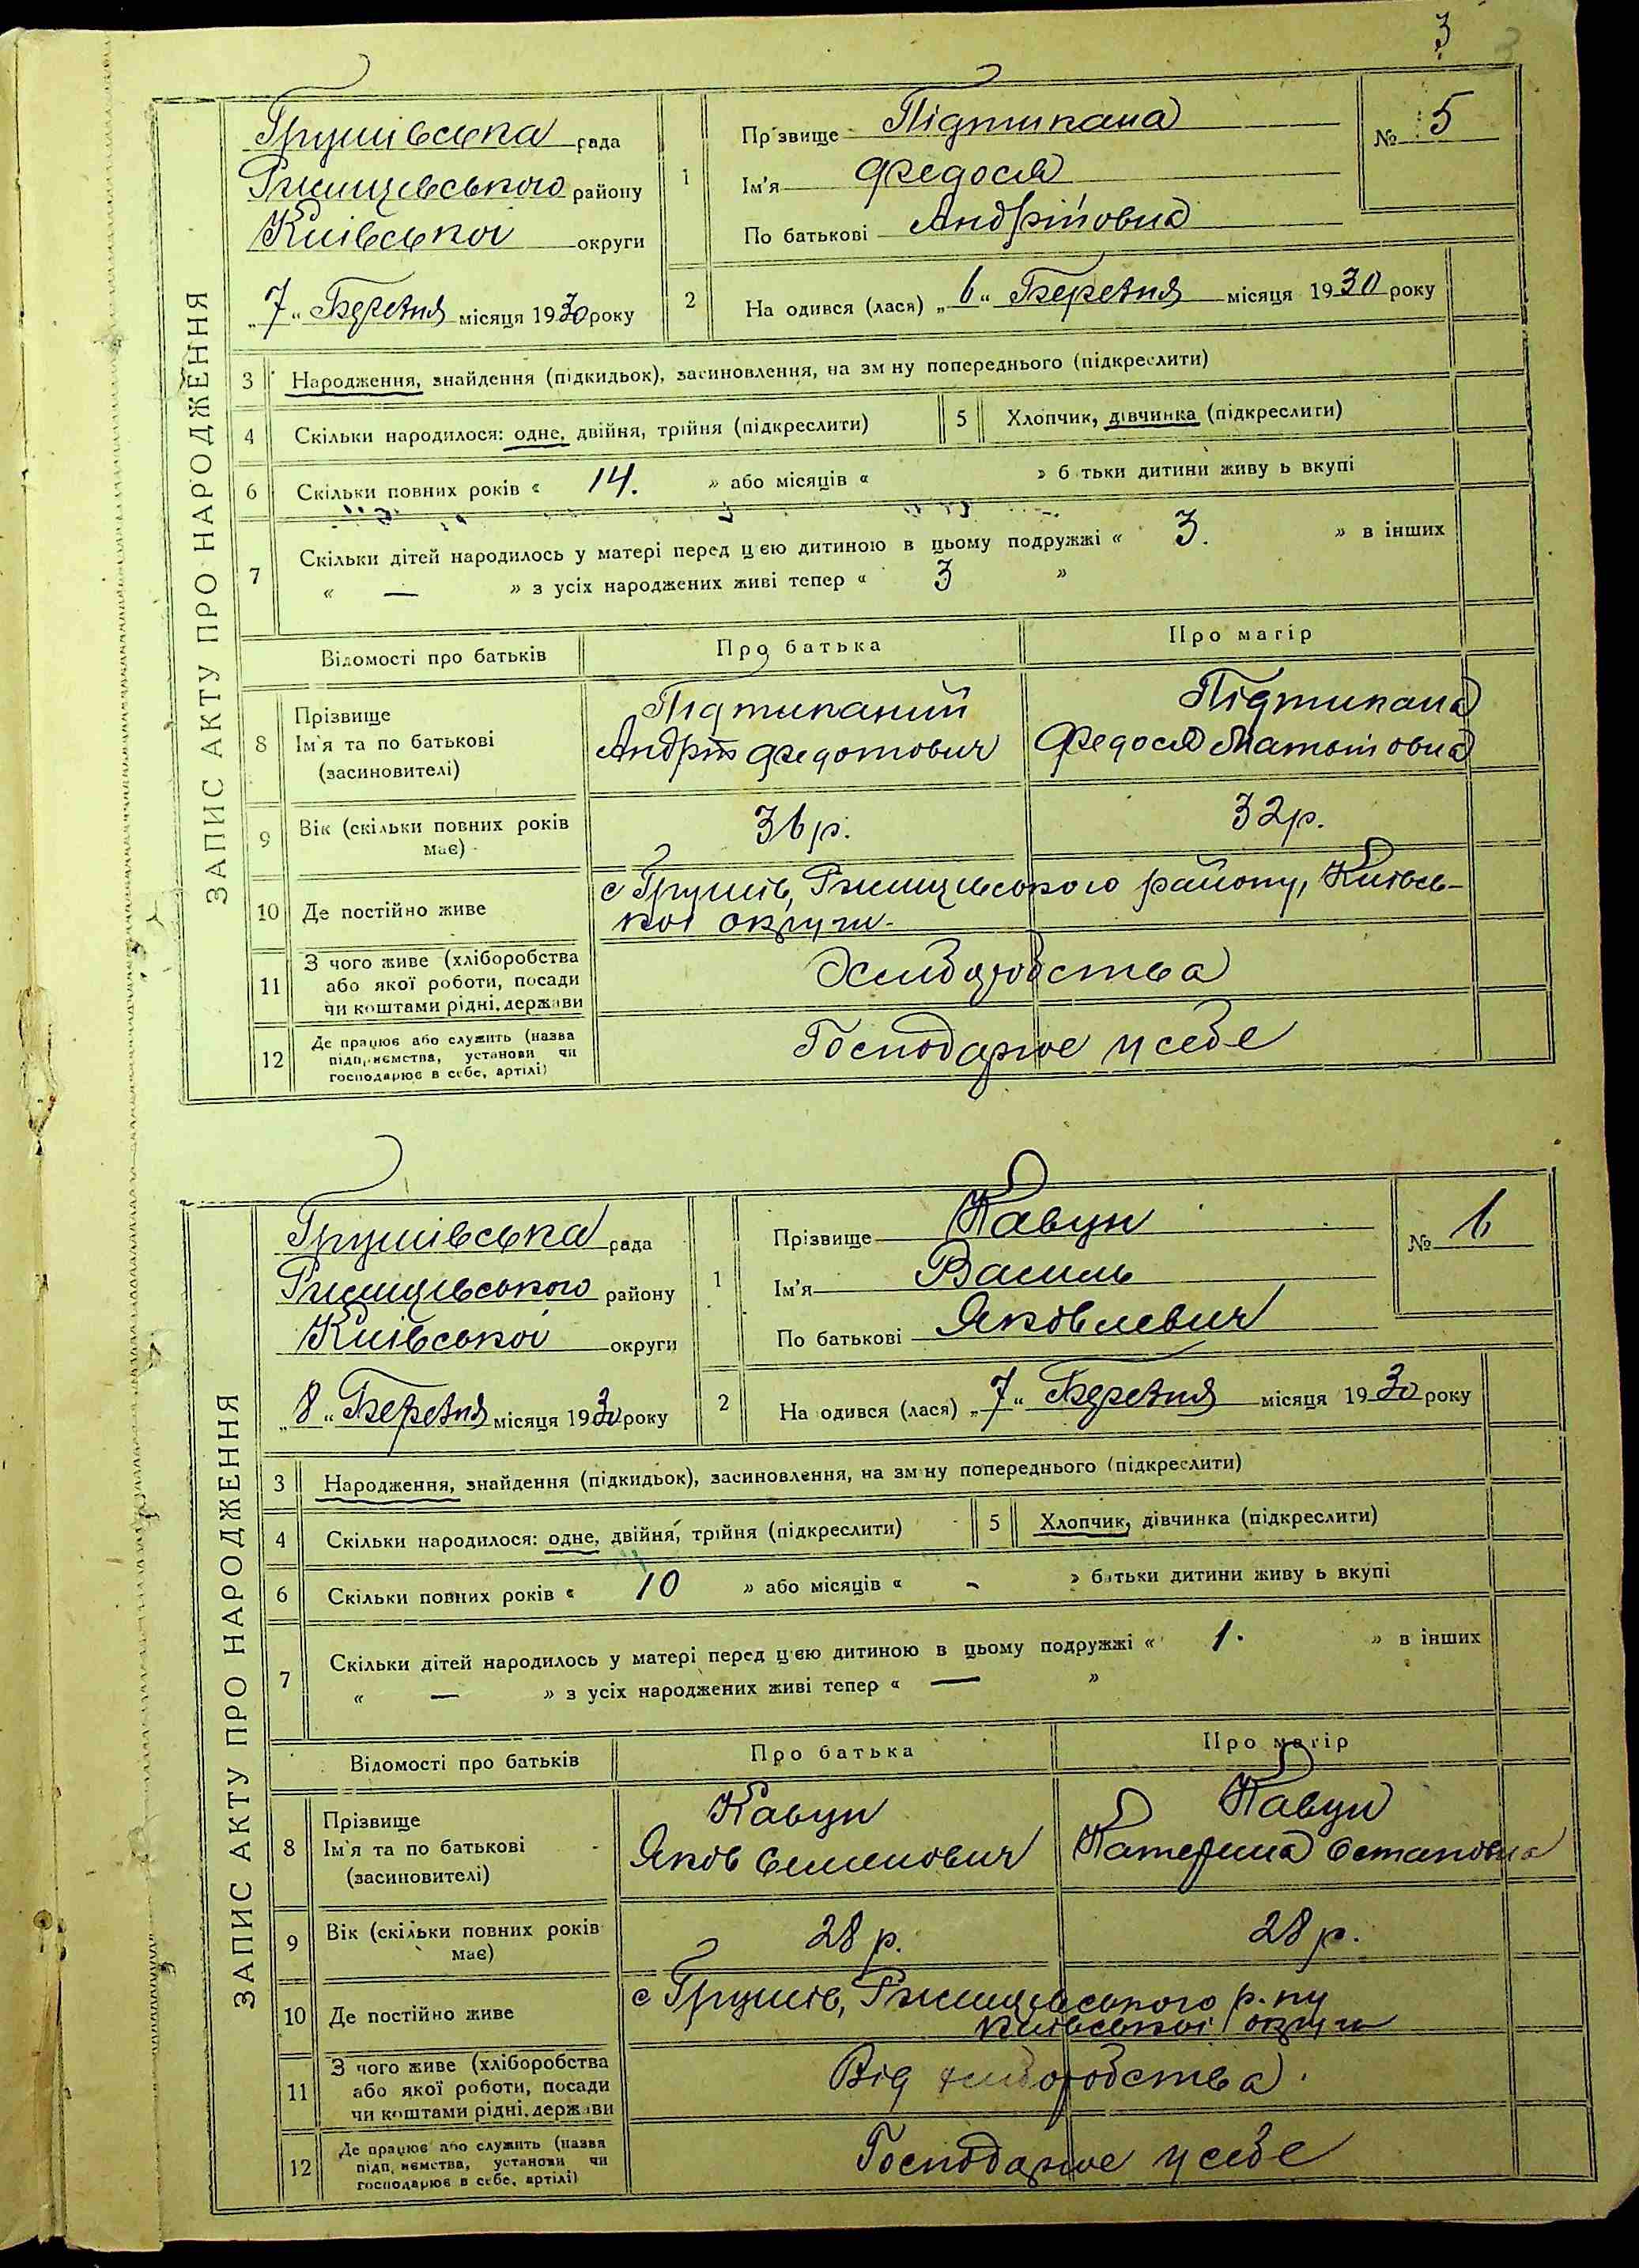 3
3
ЗАПИС АКТУ ПРО НАРОДЖЕННЯ
Грушівська рада
Ржищевського району
Київської округи
„7“ Березня місяця 1930 року
1
Прзвище Підтикана
Ім'я Федося
По батькові Андріївна
№ 5
2
На одився (лася) „6“ Березня місяця 1930 року
3 Народження, знайдення (підкидьок), засиновлення, на зм ну попереднього (підкреслити)
4 Скільки народилося: одне, двійня, трійня (підкреслити) 5 Хлопчик, дівчинка (підкреслити)
6 Скільки повних років « 14. » або місяців « » б тьки дитини живу ь вкупі
7 Скільки дітей народилось у матері перед цією дитиною в цьому подружжі « 3. » в інших
« — » з усіх народжених живі тепер « 3 »
Відомості про батьків Про батька Про матір
8 Прізвище
Ім'я та по батькові
(засиновителі)
Підтиканий
Андрій Федотович
Підтикана
Федося
9 Вік (скільки повних років
має)
36 р. 32 р.
10 Де постійно живе
с Грушів, Ржищевського району, Київсь-
кої округи.
11 З чого живе (хліборобства
або якої роботи, посади
чи коштами рідні, держави
Хліборобства
12 Де працює або служить (назва
підприємства, установи чи
господарює в себе, артілі)
Господарює у себе
ЗАПИС АКТУ ПРО НАРОДЖЕННЯ
Грушівська рада
Ржищевського району
Київської округи
„8“ Березня місяця 1930 року
1
Прізвище Кавун
Ім'я Василь
По батькові Яковлевич
№ 6
2
На одився (лася) „7“ Березня місяця 1930 року
3 Народження, знайдення (підкидьок), засиновлення, на зм ну попереднього (підкреслити)
4 Скільки народилося: одне, двійня, трійня (підкреслити) 5 Хлопчик, дівчинка (підкреслити)
6 Скільки повних років « 10 » або місяців « - » батьки дитини живу ь вкупі
7 Скільки дітей народилось у матері перед цією дитиною в цьому подружжі « 1. » в інших
« — » з усіх народжених живі тепер « — »
Відомості про батьків Про батька Про матір
8 Прізвище
Ім'я та по батькові
(засиновителі)
Кавун
Яків Семенович
Кавун
Катерина Остаповна
9 Вік (скільки повних років
має)
28 р. 28 р.
10 Де постійно живе
с Грушів, Ржищевського р-ну
Київської округи
11 З чого живе (хліборобства
або якої роботи, посади
чи коштами рідні, держави
Від хліборобства.
12 Де працює або служить (назва
підп, ємства, установи чи
господарює в себе, артілі)
Господарює у себе